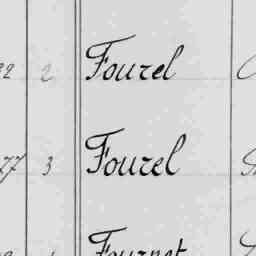 2 Fourel
77 3 Fourel
Fournet